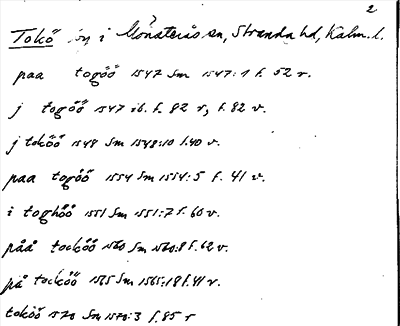 2
Tokö ön i Mönsterås sn, Stranda hd, Kalm. l.
paa togöö 1547 Sm 1547:1 f. 52 r.
j togöö 1547 ib. f. 82 r, f. 82 v.
j toköö 1548 Sm 1548:10 f.40 v.
paa togöö 1554 Sm 1554:5 f. 41 v.
i toghöö 1551 Sm 1551:7 f. 60 v.
påå tocköö 1560 Sm 1560:8 f. 62 v.
på tocköö 1565 Sm 1565:18 f. 41 r.
toköö 1570 Sm 1570:3 f. 85 r